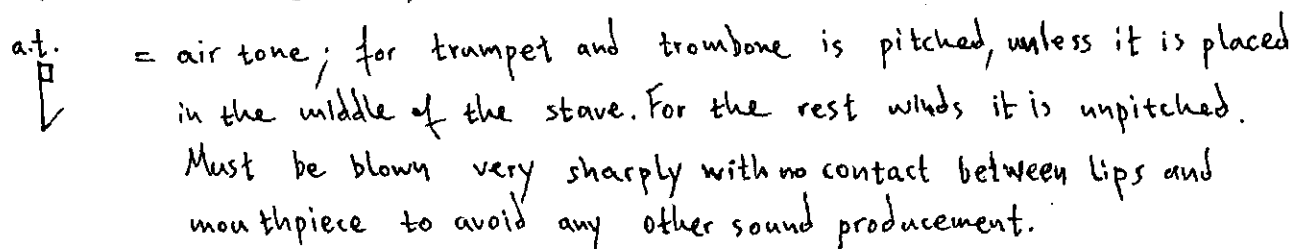 a.t. = air tone; for trumpet and trombone is pitched, unless it is placed
in the middle of the stave. For the rest winds it is unpitched.
Must be blown very sharply with no contact between lips and
mouthpiece to avoid any other sound producement.